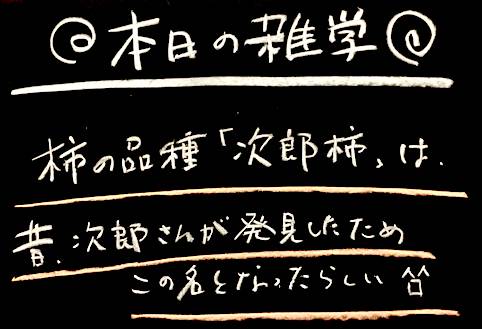 本日の雑学
柿の品種「次郎柿」は、
昔、次郎さんが発見したため
この名となったらしい